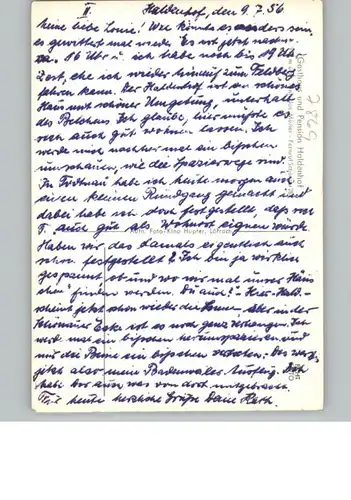 II
Haldenhof, den 9.7.56
Meine liebe Lonie! Wer könnte es anders sein,
es gewittert mal wieder. Es ist jetzt nachm.
ca. 16 Uhr u. ich habe noch bis 19 Uhr
Zeit, ehe ich wieder hinauf zum Feldberg
fahren kann. Der Haldenhof ist ein schönes
Haus mit schöner Umgebung, unterhalb
des Belchens. Ich glaube, hier müßte es
sich auch gut wohnen lassen. Ich
werde mich nachher mal ein bißchen
umschauen, wie die Spazierwege sind.
In Todtnau habe ich heute morgen auch
einen kleinen Rundgang gemacht und
dabei habe ich doch festgestellt, daß sich
T. auch gut als Wohnort eignen würde
Haben wir das damals eigentlich auch
schon festgestellt? Ich bin ja wirklich
gespannt, ob und wo wir mal unser "Häus
chen" finden werden. Du auch? - Hier
scheint jetzt schon wieder die Sonne. Aber in der
Schönauer Ecke ist es noch ganz verhangen. Ich
werde mal ein bißchen herumspazieren und
mir die Beine ein bißchen vertreten. Das wird
jetzt also mein Badenweiler Ausflug. Ich
habe Dir auch was von dort mitgebracht.
Für heute herzliche Grüße Dein
Gasthaus und Pension Haldenhof
Foto-Kino Hupfer, Lörrach
5982